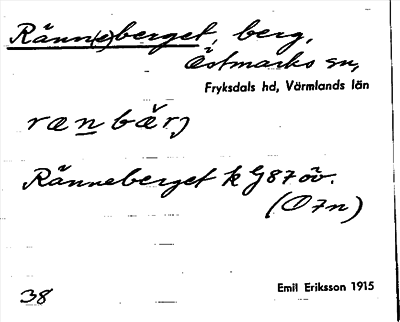 Ränn(e)berget, berg,
Östmarks sn,
Fryksdals hd, Värmlands län
rænbærj
Ränneberget k G87 öv.
(Ö7n)
38
Emil Eriksson 1915